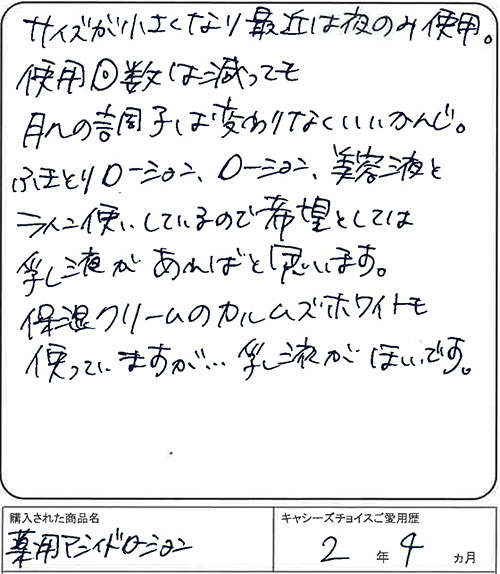 サイズが小さくなり最近は夜のみ使用。
使用回数は減っても
肌の調子は変わりなくいいかんじ。
ふきとりローション、ローション、美容液と
ライン使いしているので希望としては
乳液があればと思います。
保湿クリームのカルムズホワイトも
使っていますが… 乳液がほしいです。
購入された商品名
キャシーズチョイスご愛用歴
薬用アシィドローション
2 年 4 カ月